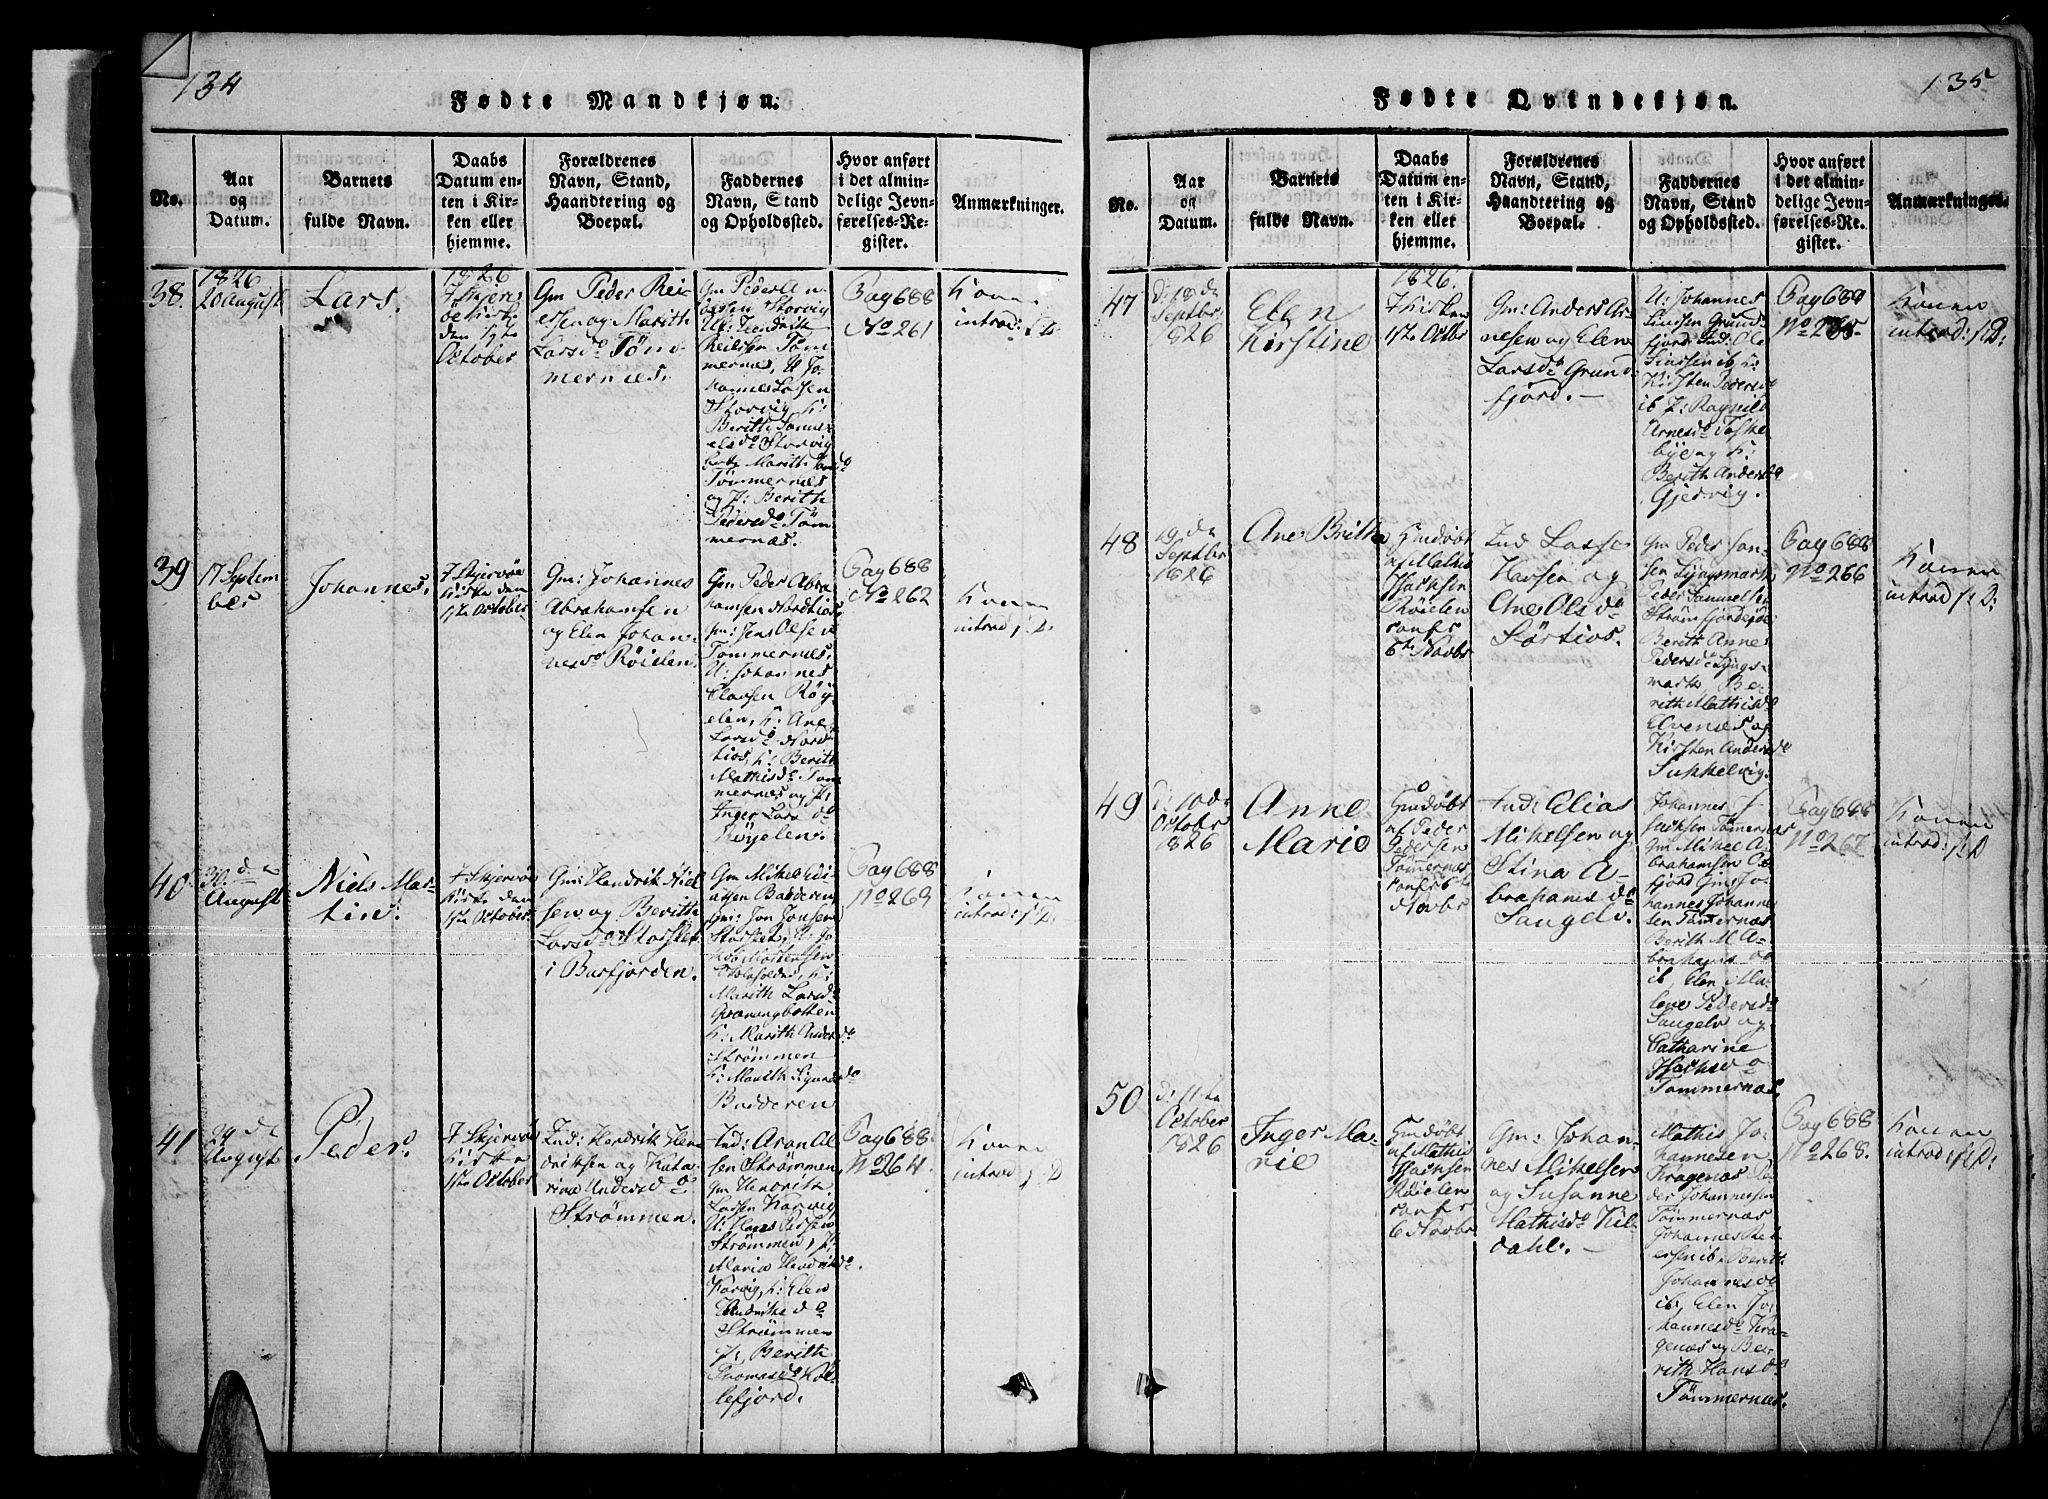 134
Fødte Mandkjøn.
No.
Aar
og
Datum.
Barnets
fulde Navn.
Daabs
Datum en-
ten i Kir-
ken eller
hjemme.
Forældrenes
Navn, Stand,
Haandtering og
Boepæl.
Faddernes
Navn, Stand
og Opholdssted.
Hvor anført
i det almin-
delige Jevn-
førelses-Re-
gister.
Anmærkninger.
38.
1826
20 August
Lars.
1826
I Skjerv-
øe Kirke
den 1ste
October
Gm Peder Rei-
ersen og Marith
Larsdr Töm-
mernes.
Storvig
U: Hendrik
Töm-
mernes, U Jo-
hannes Larsen
Storvig, k:
Berith
Storvig
Marith
Tömmernes
og P: Berith
Pedersdr Töm-
mernæs.
Pag 688
No 261
Konen
introd: p: D:
39
17 Septem
ber
Johannes.
I Skjervöe
Kirke den
1ste October
Gm: Johannes
Abrahamsen
og Elen Johan-
nesdr Röielen.
Gm: Peder Abra
hamsen
Gm: Jens Olsen
Tömmernes,
U: Johannes
Clausen Röÿ-
elen, k: Ane
Larsdr Nord-
tios, k: Berith
Mathisdr Töm
mernæs og P:
Inger Larsdr
Röyelen.
Pag 688
No 262
Konen
introd p: D:
40
30 de
August
Niels Mar-
tin.
I Skjervöe
Kirke den
1ste October
Gm: Hendrik Niel
sen og Berith
Larsdr Storslet
i Burfjorden.
Gm Mikel
Badderen
Gm: Jon Jonsen
Storslet, U: Jo-
Mortensen
k:
Marith Larsdr
k: Marith Andersdr
Strömmen
k: Marith
Badderen
Pag 688
No 263
Konen
introd: p: D:
41
24 de
August
Peder.
I Skjervöe
Kirke
1ste October
Ind: Hendrik Hen
driksen og Kata-
rina Andersdr
Strömmen.
Ind: Aron Ol-
sen Strömmen,
Gm Hendrik
Larsen Korvig
U: Hans Persen
Strömmen, P:
Maria Hendriksdr
Korvig, k: Elen
Hendriksdr
Strömmen
P: Berith
Thomasdr Kol-
lefjord.
Pag 688.
No 264.
Konen
introd: p: D
135
Fødte Qvindekjøn.
No.
Aar
og
Datum.
Barnets
fulde Navn.
Daabs
Datum en-
ten i Kir-
ken eller
hjemme.
Forældrenes
Navn, Stand,
Haandtering og
Boepæl.
Faddernes
Navn, Stand
og Opholdssted.
Hvor anført
i det almin-
delige Jevn-
førelses-Re-
gister.
Anmærkninger.
47
d: 18 de
Septbr
1826
Elen
Kirstine
1826.
I Kirken
1ste Octbr
Gm: Anders Ar-
nesen og Elen
Larsdr Grund-
fjord. —
U: Johannes
Grund-
fjord, Ind: Ole
ib, k:
Kirsten Pedersdr
ib P: Ragnild
Arnesdr
bye og k:
Berith Andersdr
Gjedvig.
Pag 689
No 265.
Konen
introd: p: D:
48
19 de
Septbr
1826
Ane Brith
Gmdöbt
af Mathis
Isachsen
Röielen
6te Novbr
Ind Lasse
Hansen og
Ane Olsdr
Sörtios.
Gm Peder Han-
sen Lyngsmark
Peder Samuelsen
Strömfjordeidet
Berith Annes
Pedersdr Lyngs-
mark Be-
rith Mathisdr
Elvenæs og
Kirsten Andersdr
Suppelvig.
Pag 688
No 266
Konen
introd p: D:
49
d: 10 de
Octobr
1826
Anne
Marie
Gmdöbt
af Peder
Pedersen
Tömmernes
6te
Novbr
Ind: Elias
Mikelsen og
Stina A-
brahamsdr
Sangelv.
Johannes I-
sachsen Tömernæs
Gm Mikel A-
brahamsen
fjord Gm Jo-
hannes Johanne
sen Tömernæs
Berith M A-
brahamsdr
ib, Elen Ma-
lene Pedersdr
Sangelv og
Catharine
Isachsdr
Tömmernæs.
Pag 688
No 267
Konen
introd: p: D
50
d: 11 te
October
1826
Inger Ma-
rie
Gmdöbt
af Mathis
Isachsen
Röielen
6 Novbr
Gm: Johan-
nes Mikelsen
og Susanne
Mathisdr Kil-
dahl. —
Mathis Jo-
hannesen
Kragenæs Pe-
der Johannesen
Tömmernæs
Johannes Pet-
ersen ib. Berith
Johannesdr
ib, Elen Jo-
hannesdr Kra-
genæs og Be-
rith Hansdr
Tömmernæs.
Pag 688
No 268.
Konen
introd p: D: